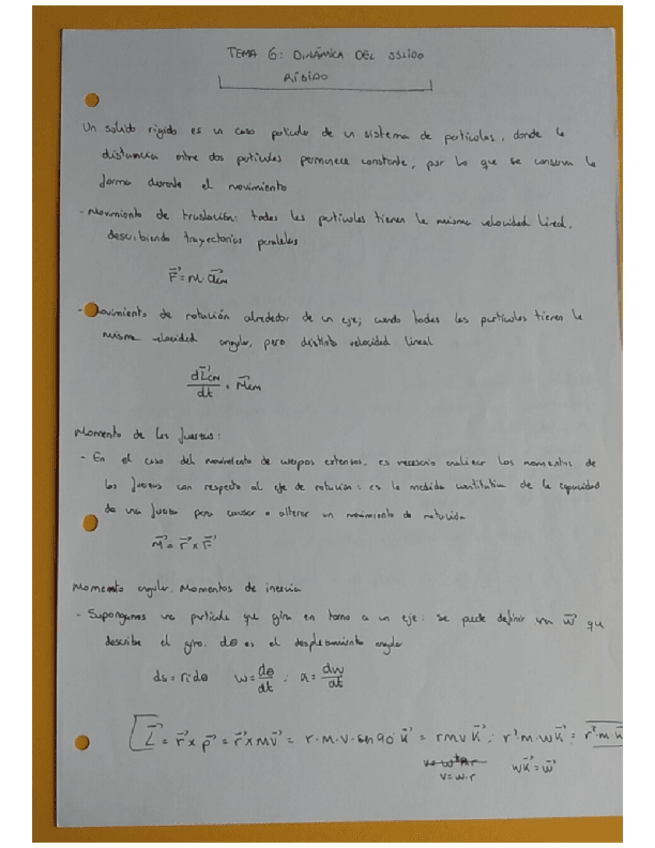 TEMA 6: DINÁMICA DEL SÓLIDO
RÍGIDO
Un sólido rígido es un caso particular de un sistema de partículas, donde la
distancia entre dos partículas permanece constante, por lo que se conserva la
forma durante el movimiento
- Movimiento de traslación: todas las partículas tienen la misma velocidad lineal,
describiendo trayectorias paralelas
F⃗ = m · a⃗cm
- Movimiento de rotación alrededor de un eje; cuando todas las partículas tienen la
misma velocidad angular, pero distinta velocidad lineal
dL⃗cm/dt = M⃗cm
Momento de las fuerzas:
- En el caso del movimiento de cuerpos extensos, es necesario analizar los momentos de
las fuerzas con respecto al eje de rotación: es la medida cuantitativa de la capacidad
de una fuerza para causar o alterar un movimiento de rotación
M⃗ = r⃗ x F⃗
Momento angular. Momentos de inercia
- Supongamos una partícula que gira en torno a un eje: se puede definir un w⃗ que
describe el giro. dθ es el desplazamiento angular
ds = ri dθ w = dθ/dt ; α = dw/dt
L⃗ = r⃗ x p⃗ = r⃗ x mv⃗ = r · m · v · sen 90 k⃗ = rmv k⃗ ; r² · m · w k⃗ = r² · m ·
v = w · r wk⃗ = w⃗